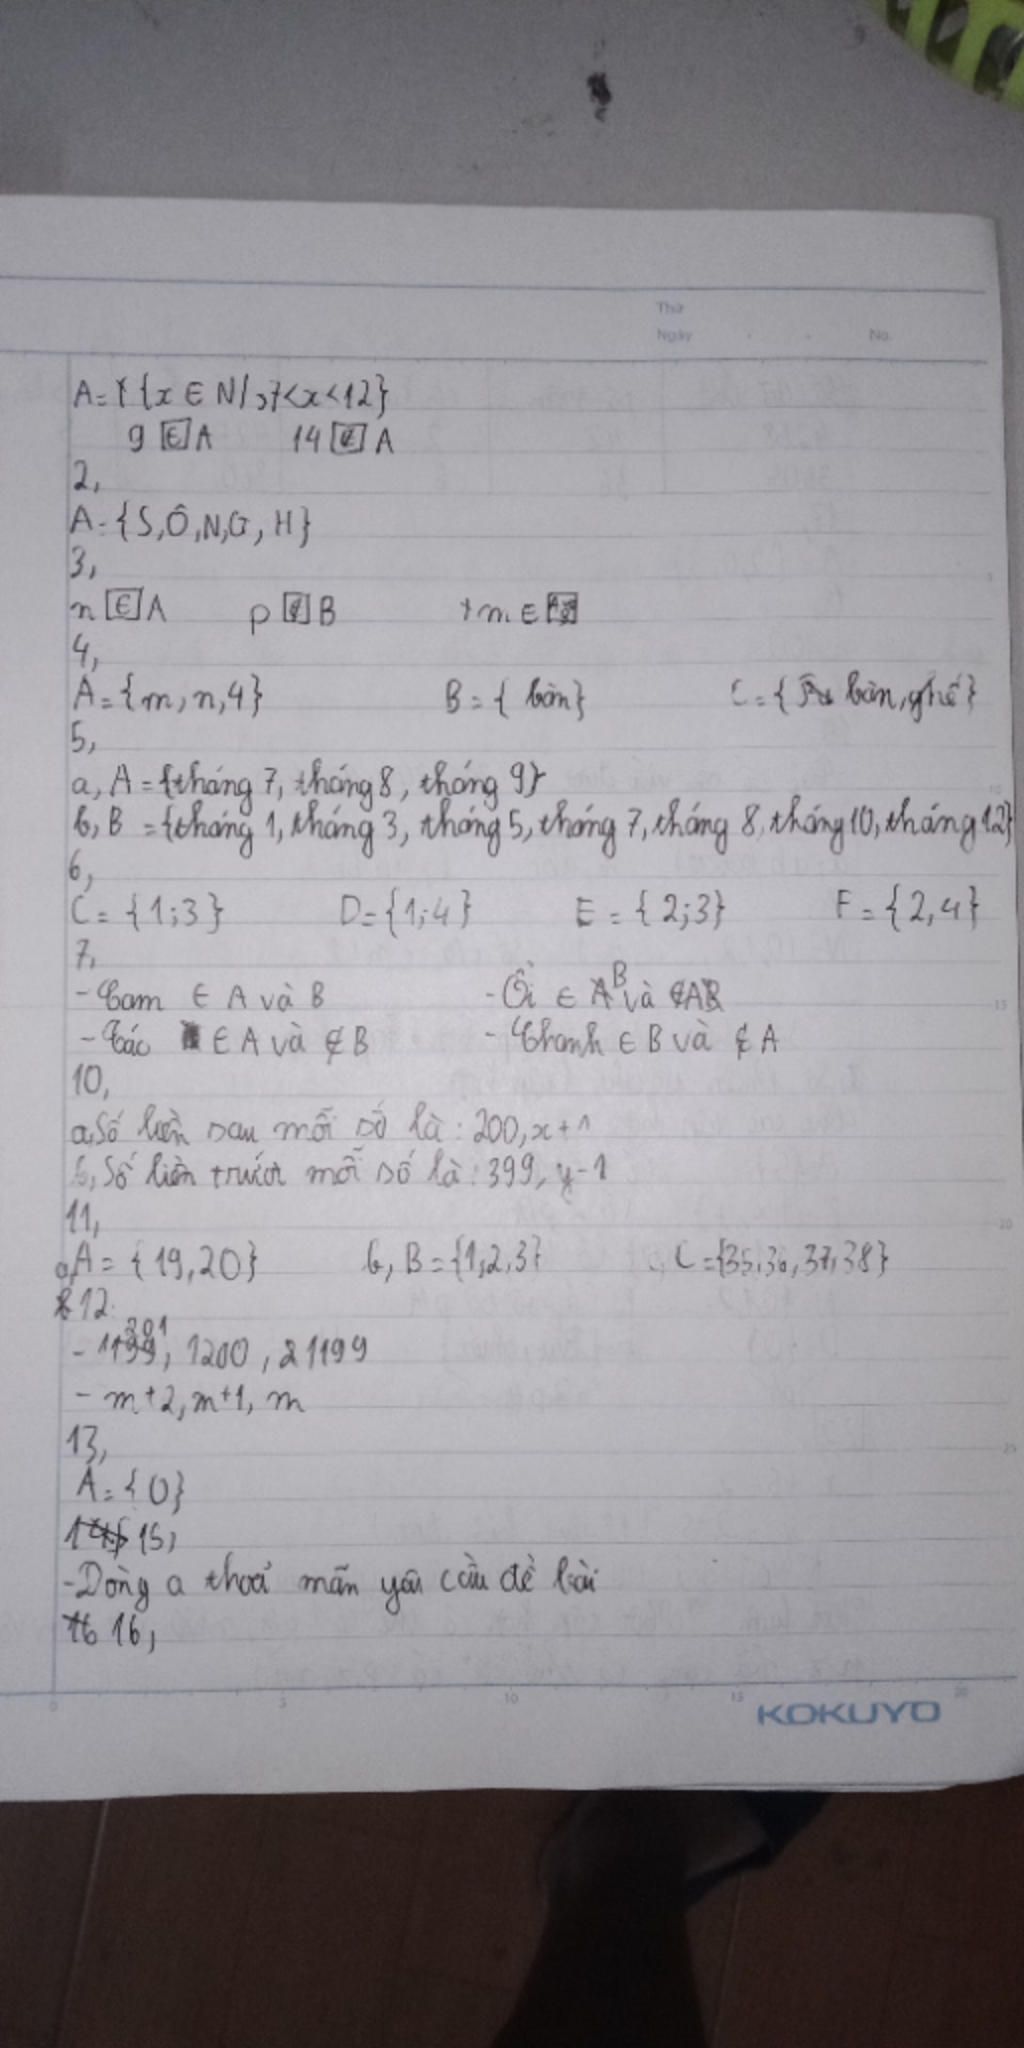 Thứ
Ngày . . No.
A = {x ∈ N / 7<x<12}
9 ∈ A 14 ∉ A
2,
A = {S,Ô,N,G,H}
3,
n ∈ A p ∉ B m ∈
4,
A = {m,n,4} B = { bàn} C = { bàn, ghế}
5,
a, A = {tháng 7, tháng 8, tháng 9}
b, B = {tháng 1, tháng 3, tháng 5, tháng 7, tháng 8, tháng 10, tháng 12}
6,
C = {1;3} D = {1;4} E = {2;3} F = {2,4}
7,
- Cam ∈ A và B - Ổi ∈ B và ∉ A
- Các ∈ A và ∉ B - Chanh ∈ B và ∉ A
10,
a, Số liền sau mỗi số là: 200, x+1
b, Số liền trước mỗi số là: 399, y-1
11,
a, A = {19,20} b, B = {1,2,3} C = {35,36,37,38}
12.
- 1201, 1200, 1199
- m+2, m+1, m
13,
A = {0}
15,
- Dòng a thoả mãn yêu cầu đề bài
16,
0 5 10 15 20
KOKUYO